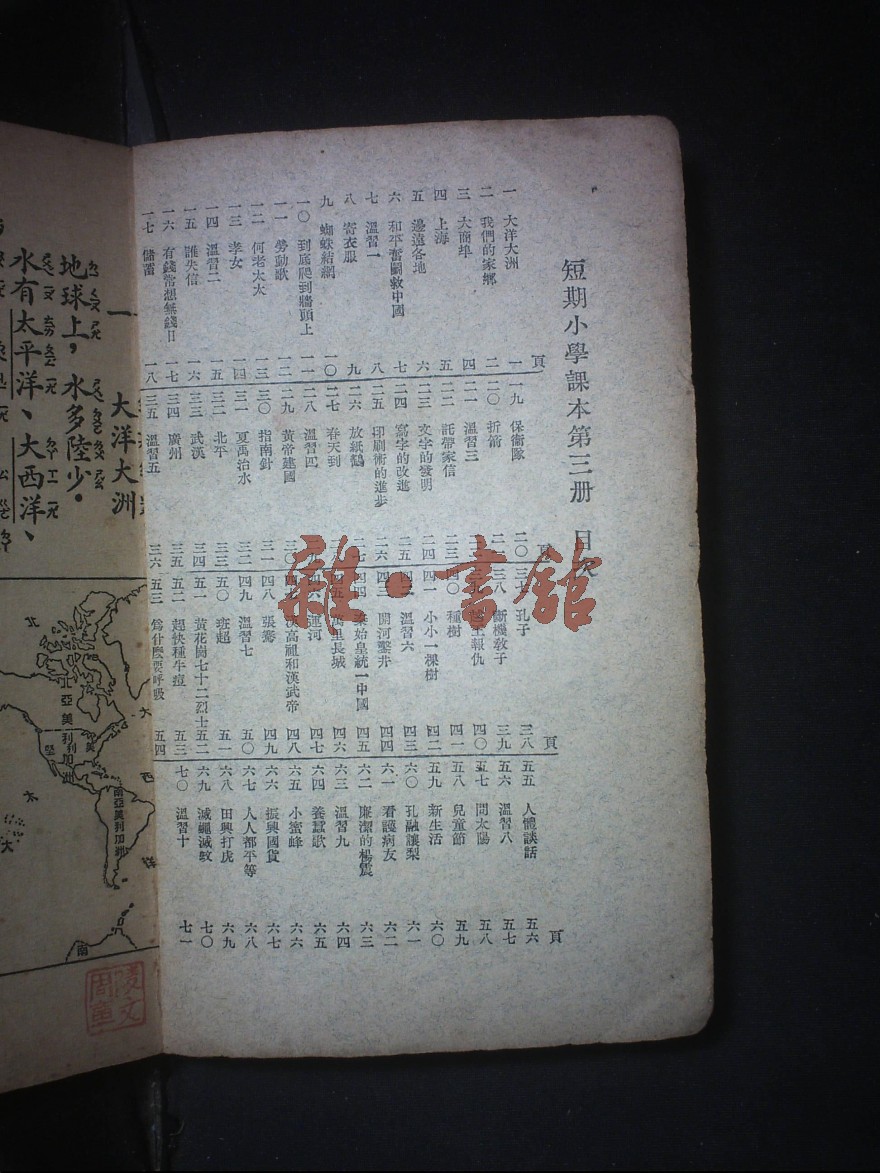 短期小學課本第三冊 目次
頁
一 大洋大洲 一
二 我們的家鄉 二
三 大商埠 四
四 上海 五
五 邊遠各地 六
六 和平奮鬭救中國 七
七 溫習一 八
八 寄衣服 九
九 蜘蛛結網 一〇
一〇 到底爬到牆頭上 一一
一一 勞動歌 一二
一二 何老大大 一三
一三 孝女 一四
一四 溫習二 一五
一五 誰失信 一六
一六 有錢常想無錢日 一七
一七 儲蓄 一八
頁
一九 保衛隊 二〇
二〇 折箭
二一 溫習三
二二 託帶家信 二三
二三 文字的發明 二四
二四 寫字的改進 二五
二五 印刷術的進步 二六
二六 放紙鶴 二七
二七 春天到
二八 溫習四
二九 黃帝建國 三〇
三〇 指南針 三一
三一 夏禹治水 三二
三二 北平 三三
三三 武漢 三四
三四 廣州 三五
三五 溫習五 三六
頁
孔子 三八
三八 斷機教子 三九
王報仇 四〇
四〇 種樹 四一
四一 小小一棵樹 四二
溫習六 四三
四三 開河鑿井 四四
四四 秦始皇統一中國 四五
四五 萬里長城 四六
四六 運河 四七
漢高祖和漢武帝 四八
四八 張騫 四九
四九 溫習七 五〇
五〇 班超 五一
五一 黃花崗七十二烈士 五二
五二 趕快種牛痘 五三
五三 爲什麽要呼吸 五四
頁
五五 人體談話 五六
五六 溫習八 五七
五七 問太陽 五八
五八 兒童節 五九
五九 新生活 六〇
六〇 孔融讓梨 六一
六一 看護病友 六二
六二 廉潔的楊震 六三
六三 溫習九 六四
六四 養蠶歌 六五
六五 小蜜蜂 六六
六六 振興國貨 六七
六七 人人都平等 六八
六八 田興打虎 六九
六九 滅蠅滅蚊 七〇
七〇 溫習十 七一
雜·書館
一 大洋大洲
地球上，水多陸少。
水有太平洋、大西洋、
北
北亞美利加洲
美
南亞美利加洲
大
西
洋
太
南